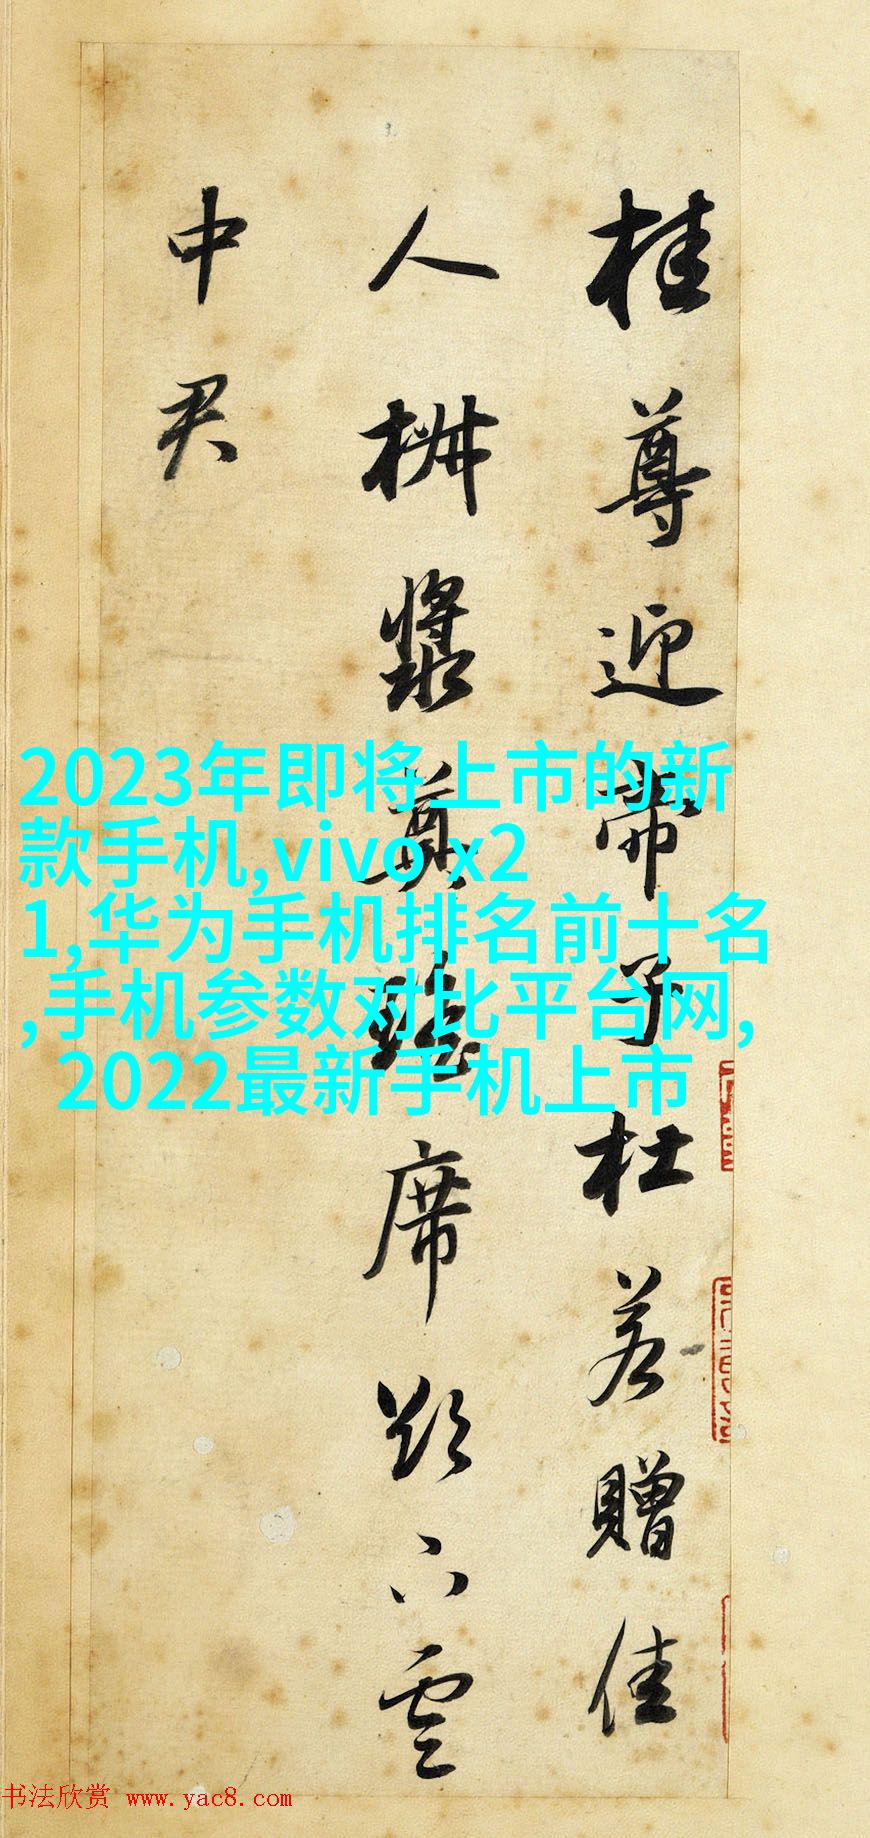 桂尊迎帝子杜若贈佳
人椒漿奠瑤席欲下雲
中君
2023年即将上市的新
款手机,vivo x2
1,华为手机排名前十名
,手机参数对比平台网,
2022最新手机上市
书法欣赏 www.yac8.com